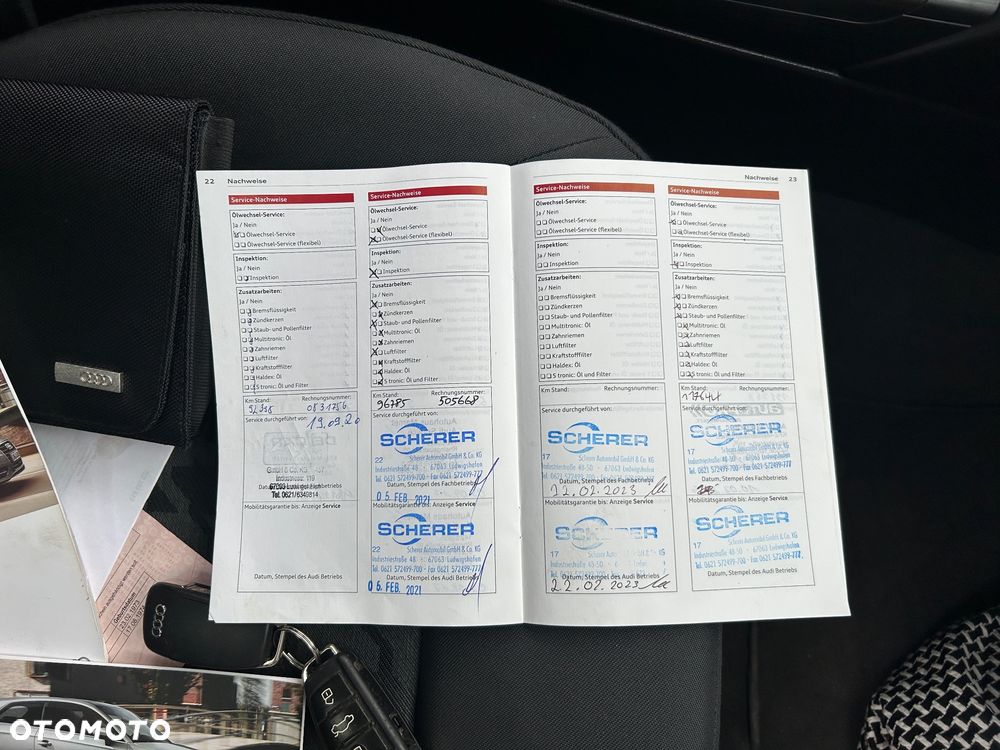 22 Nachweise
Service-Nachweise
Ölwechsel-Service:
Ja / Nein
Ölwechsel-Service
Ölwechsel-Service (flexibel)
Inspektion:
Ja / Nein
Inspektion
Zusatzarbeiten:
Ja / Nein
Bremsflüssigkeit
Zündkerzen
Staub- und Pollenfilter
Multitronic: Öl
Zahnriemen
Luftfilter
Kraftstofffilter
Haldex: Öl
S tronic: Öl und Filter
Km Stand: Rechnungsnummer:
Service durchgeführt von:
19.09.20
GmbH & Co. KG
Industriestr. 119
Tel. 0621/6349814
Mobilitätsgarantie bis: Anzeige Service
Datum, Stempel des Audi Betriebs
Service-Nachweise
Ölwechsel-Service:
Ja / Nein
Ölwechsel-Service
Ölwechsel-Service (flexibel)
Inspektion:
Ja / Nein
Inspektion
Zusatzarbeiten:
Ja / Nein
Bremsflüssigkeit
Zündkerzen
Staub- und Pollenfilter
Multitronic: Öl
Zahnriemen
Luftfilter
Kraftstofffilter
Haldex: Öl
S tronic: Öl und Filter
Km Stand: Rechnungsnummer:
96785 505668
Service durchgeführt von:
SCHERER
22 Scherer Automobil GmbH & Co. KG
Industriestraße 48 • 67063 Ludwigshafen
Tel. 0621 572499-700 • Fax 0621 572499-777
Datum, Stempel des Fachbetriebs
05. FEB. 2021
Mobilitätsgarantie bis: Anzeige Service
SCHERER
22 Scherer Automobil GmbH & Co. KG
Industriestraße 48 • 67063 Ludwigshafen
Tel. 0621 572499-700 • Fax 0621 572499-777
Datum, Stempel des Audi Betriebs
05. FEB. 2021
Nachweise 23
Service-Nachweise
Ölwechsel-Service:
Ja / Nein
Ölwechsel-Service
Ölwechsel-Service (flexibel)
Inspektion:
Ja / Nein
Inspektion
Zusatzarbeiten:
Ja / Nein
Bremsflüssigkeit
Zündkerzen
Staub- und Pollenfilter
Multitronic: Öl
Zahnriemen
Luftfilter
Kraftstofffilter
Haldex: Öl
S tronic: Öl und Filter
Km Stand: Rechnungsnummer:
Service durchgeführt von:
SCHERER
17 Scherer Automobil GmbH & Co. KG
Industriestraße 48-50 • 67063 Ludwigshafen
Tel. 0621 572499-700 • Fax 0621 572499-777
Datum, Stempel des Fachbetriebs
22.02.2023
Mobilitätsgarantie bis: Anzeige Service
SCHERER
17
Industriestraße 48-50
Datum, Stempel des Audi Betriebs
22.02.2023
Service-Nachweise
Ölwechsel-Service:
Ja / Nein
Ölwechsel-Service
Ölwechsel-Service (flexibel)
Inspektion:
Ja / Nein
Inspektion
Zusatzarbeiten:
Ja / Nein
Bremsflüssigkeit
Zündkerzen
Staub- und Pollenfilter
Multitronic: Öl
Zahnriemen
Luftfilter
Kraftstofffilter
Haldex: Öl
S tronic: Öl und Filter
Km Stand: Rechnungsnummer:
Service durchgeführt von:
SCHERER
17 Scherer Automobil GmbH & Co. KG
Industriestraße 48-50 • 67063 Ludwigshafen
Tel. 0621 572499-700 • Fax 0621 572499-777
Datum, Stempel des Fachbetriebs
Mobilitätsgarantie bis: Anzeige Service
SCHERER
17 Scherer Automobil GmbH & Co. KG
Industriestraße 48-50 • 67063 Ludwigshafen
Tel. 0621 572499-700 • Fax 0621 572499-777
Datum, Stempel des Audi Betriebs
OTOMOTO